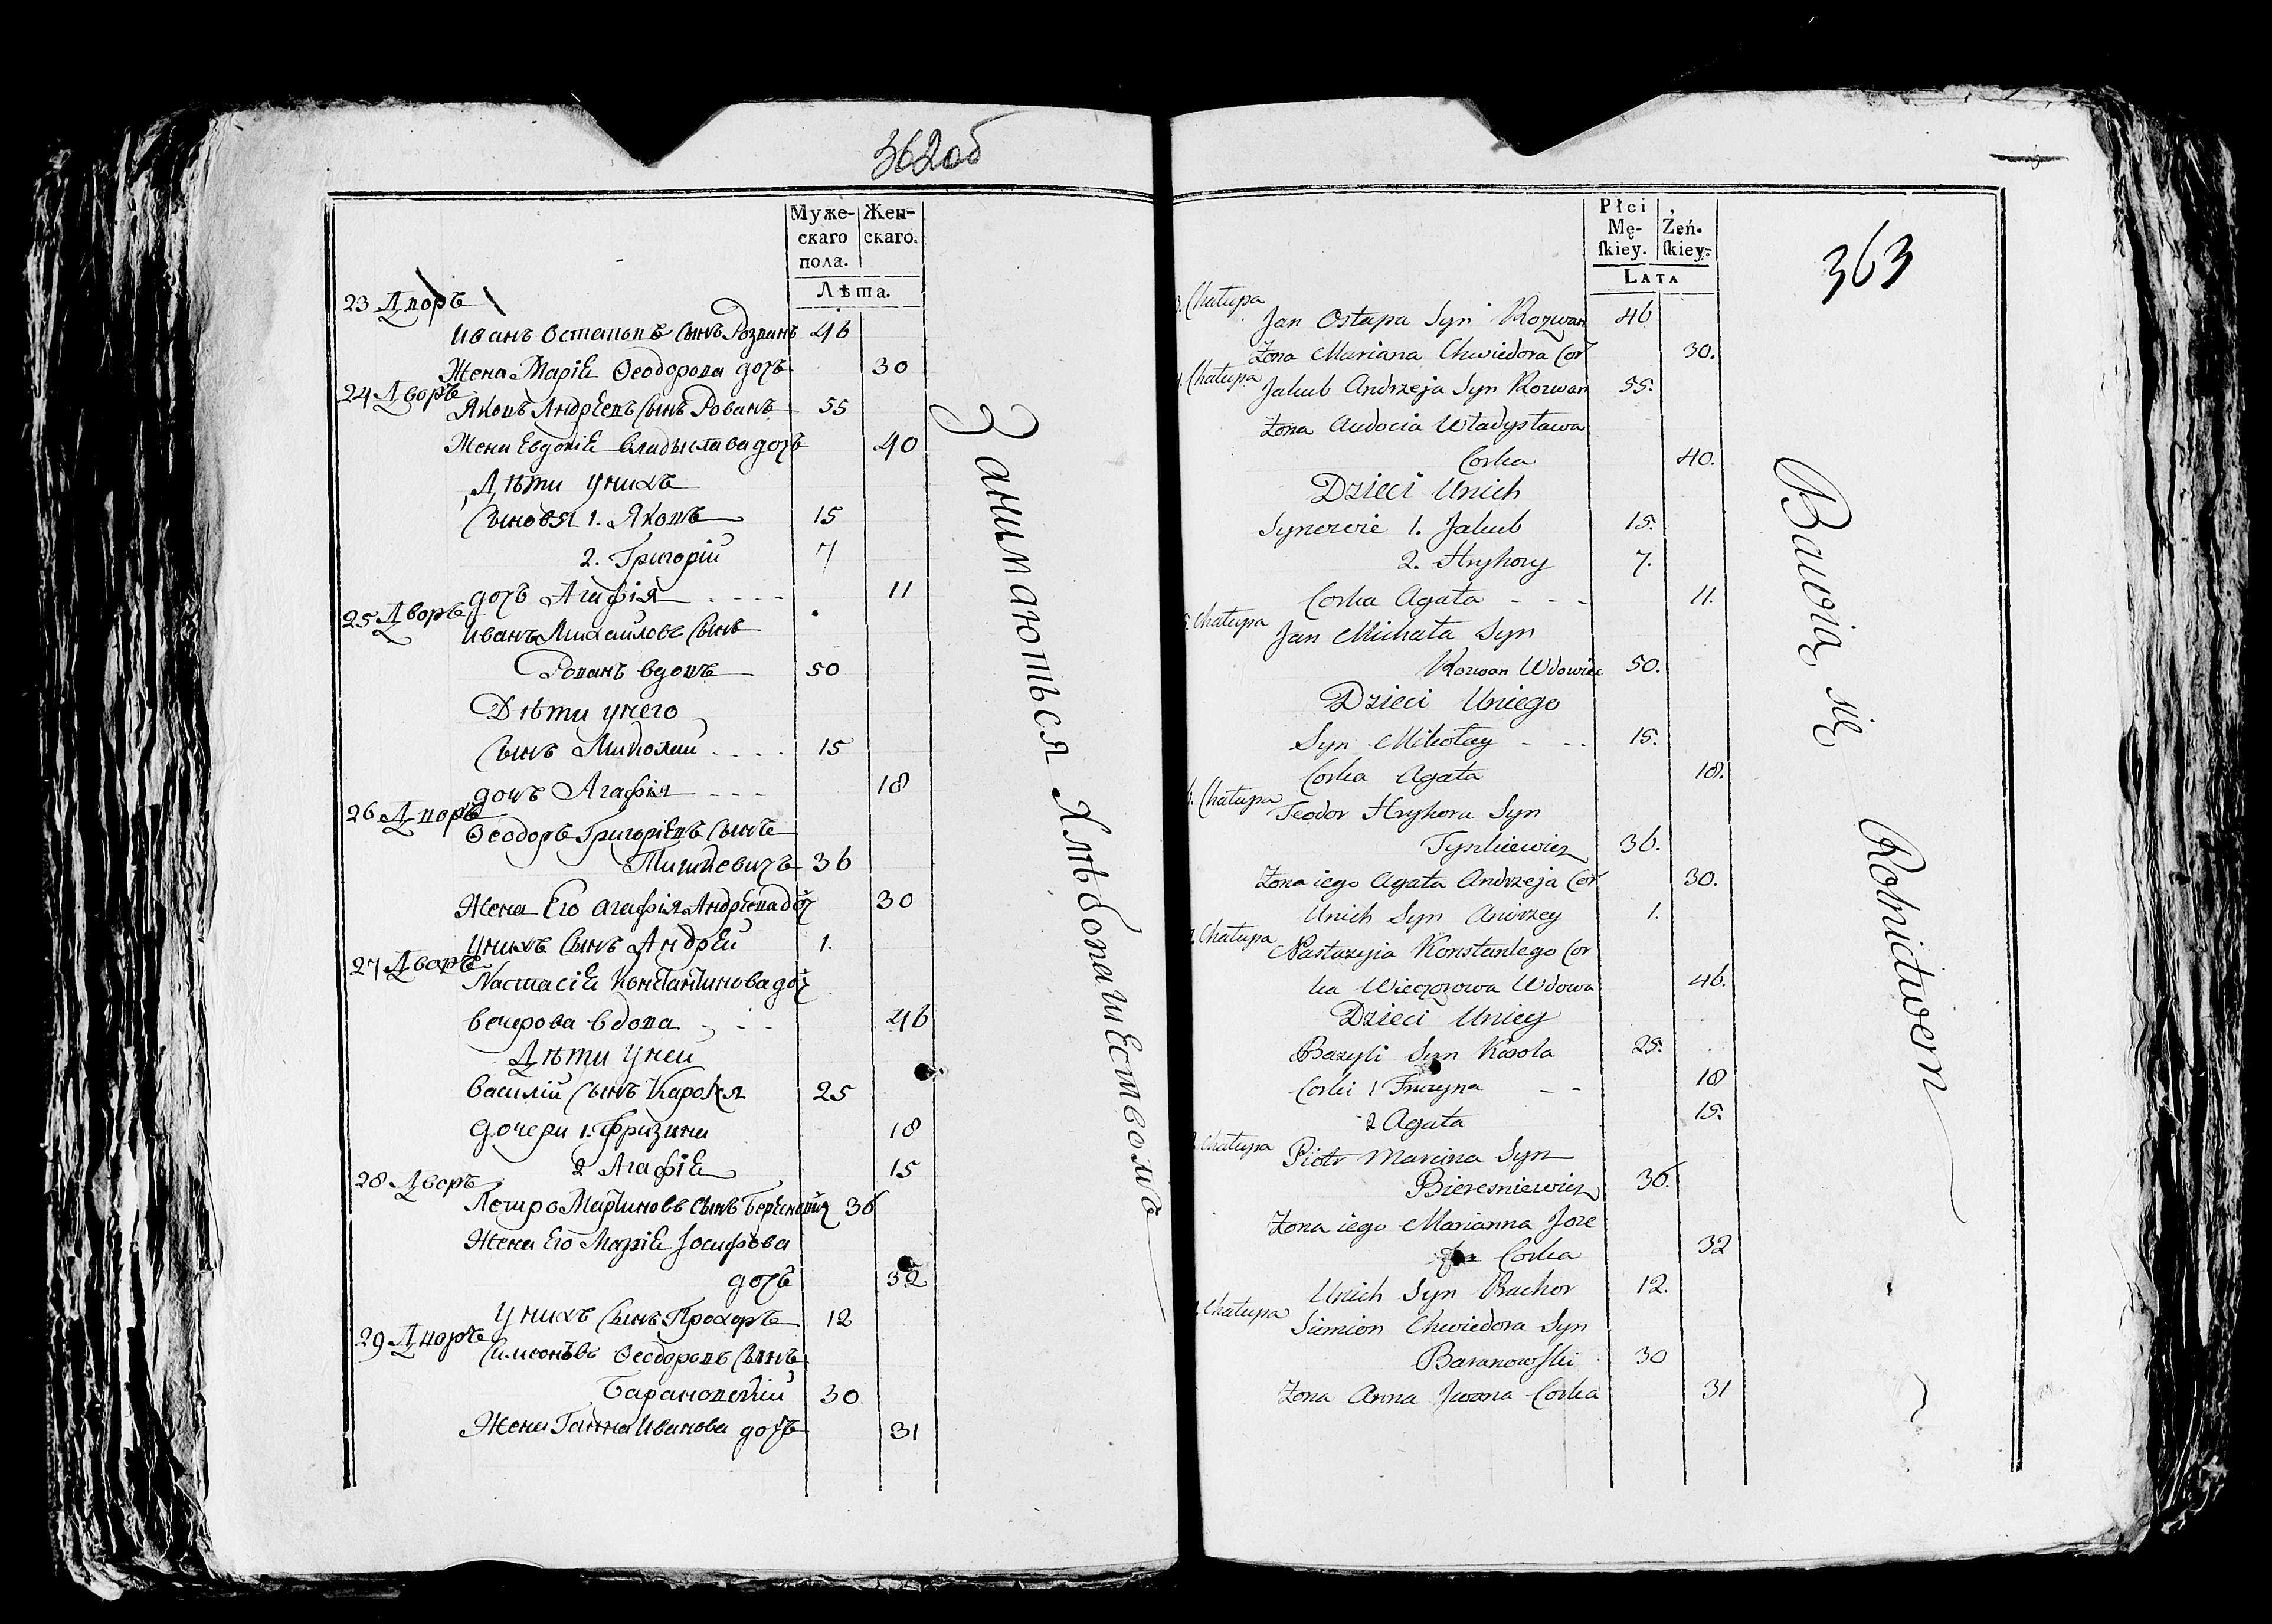 362об
Муже- Жен-
скаго скаго.
пола.
Лѣта.
23 Дворъ
Иванъ Остаповъ Сынъ Розванъ 46
Жена Маріѣ Ѳеодорова дочь 30
24 Дворъ
Яковъ Андрѣевъ Сынъ Рованъ 55
Жена Евдокіѣ Владыслава дочь 40
Дѣти унихъ
Сыновья 1. Яковъ 15
2. Григорій 7
дочь Агафія 11
25 Дворъ
Иванъ Михаиловъ Сынъ
Рованъ вдовъ 50
Дѣти унего
Сынъ Миколай 15
дочь Агафія 18
26 Дворъ
Ѳеодоръ Григоріевъ Сынъ
Тишкевичъ 36
Жена Его Агафія Андрѣева доч 30
Унихъ Сынъ Андрѣй 1.
27 Дворъ
Настасіѣ Константинова доч
вечерова вдова 46
Дѣти Уней
Василій Сынъ Кароля 25
дочери 1. Фризина 18
2 Агафіѣ 15
28 Дворъ
Петро Мартиновъ Сынъ 36
Жена Его Маріѣ Іосифова
дочь 32
Унихъ Сынъ Прохоръ 12
29 Дворъ
Симеонъ Ѳеодоровъ Сынъ
Барановскій 30
Жена Ганна Иванова дочь 31
Занимаютъся Хлѣбопашествомъ
363
Płci
Mę- Żeń-
ſkiey. ſkiey.
LATA
Chałupa
Jan Ostapa Syn Rozwan 46
Żona Mariana Chwiedora Cor 30.
Chałupa
Jakub Andrzeja Syn Rozwan 55.
Żona Audocia Władysława
Corka 40.
Dzieci Unich
Synowie 1. Jakub 15.
2. Hryhory 7.
Corka Agata 11.
Chałupa
Jan Michała Syn
Rozwan Wdowiec 50.
Dzieci Uniego
Syn Mikołay 15.
Corka Agata 18.
Chałupa
Teodor Hryhora Syn
Tyszkiewicz 36.
Żona iego Agata Andrzeja Cor 30.
Unich Syn Andrzey 1.
Chałupa
Nastazyia Konstantego Cor
ka Wieczorowa Wdowa 46.
Dzieci Uniey
Bazyli Syn Karola 25.
Corki 1 Fruzyna 18
2 Agata 15.
Chałupa
Piotr Marcina Syn
Bieresniewicz 36.
Żona iego Marianna Joze
fa Corka 32
Unich Syn Prachor 12.
Chałupa
Siemion Chwiedora Syn
Baranowſki 30
Żona Anna Jwana Corka 31
Bawią się Rolnictwem